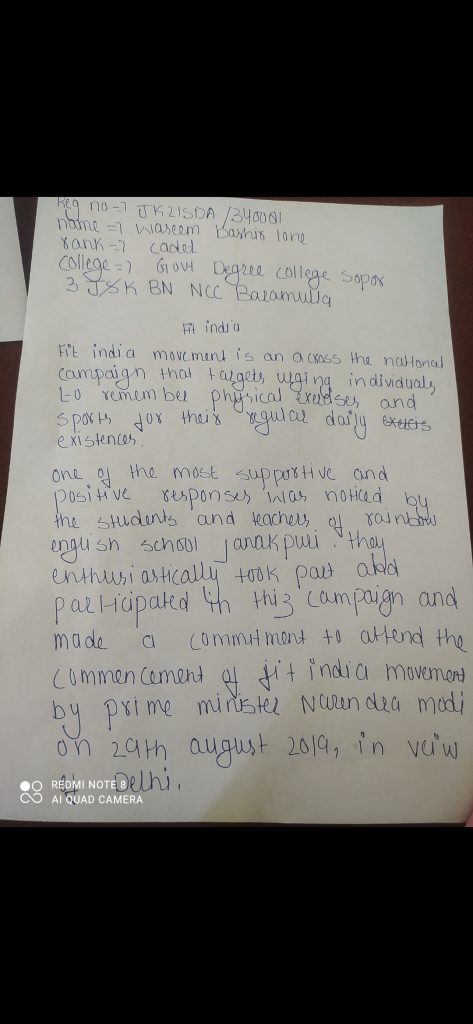 Reg no => JK21SDA/340001
name => Waseem Bashir lone
rank => cadet
College => Govt Degree college sopor
3 J&K BN NCC Baramulla
Fit india
Fit india movement is an across the national
campaign that targets urging individuals
to remember physical exercises and
sports for their regular daily
existences.
one of the most supportive and
positive responses was noticed by
the students and teachers of rainbow
english school janakpuri. they
enthusiastically took part and
participated in this campaign and
made a commitment to attend the
commencement of fit india movement
by prime minister Narendra modi
on 29th august 2019, in veiw
of Delhi.
REDMI NOTE 8
AI QUAD CAMERA